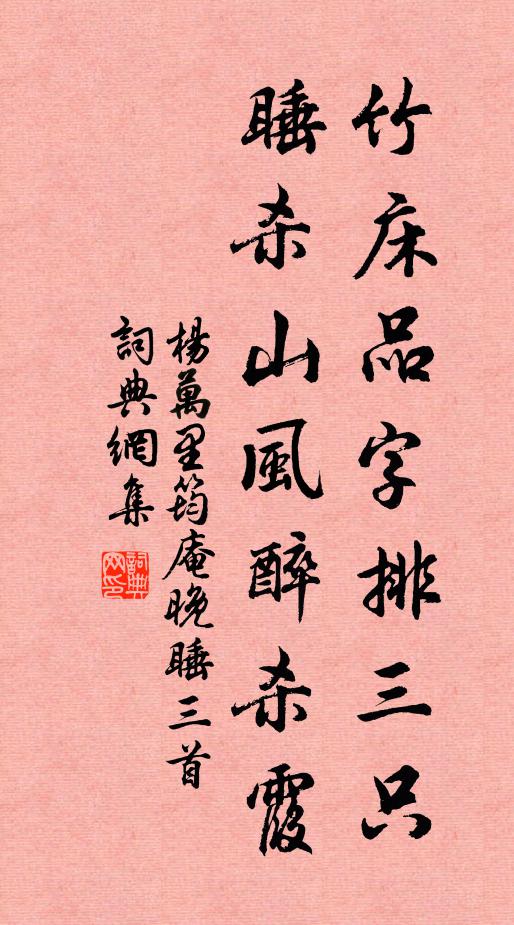 竹床品字排三只
睡杀山風醉杀霞
楊萬里筠庵晚睡三首
詞典網集
詞典網印